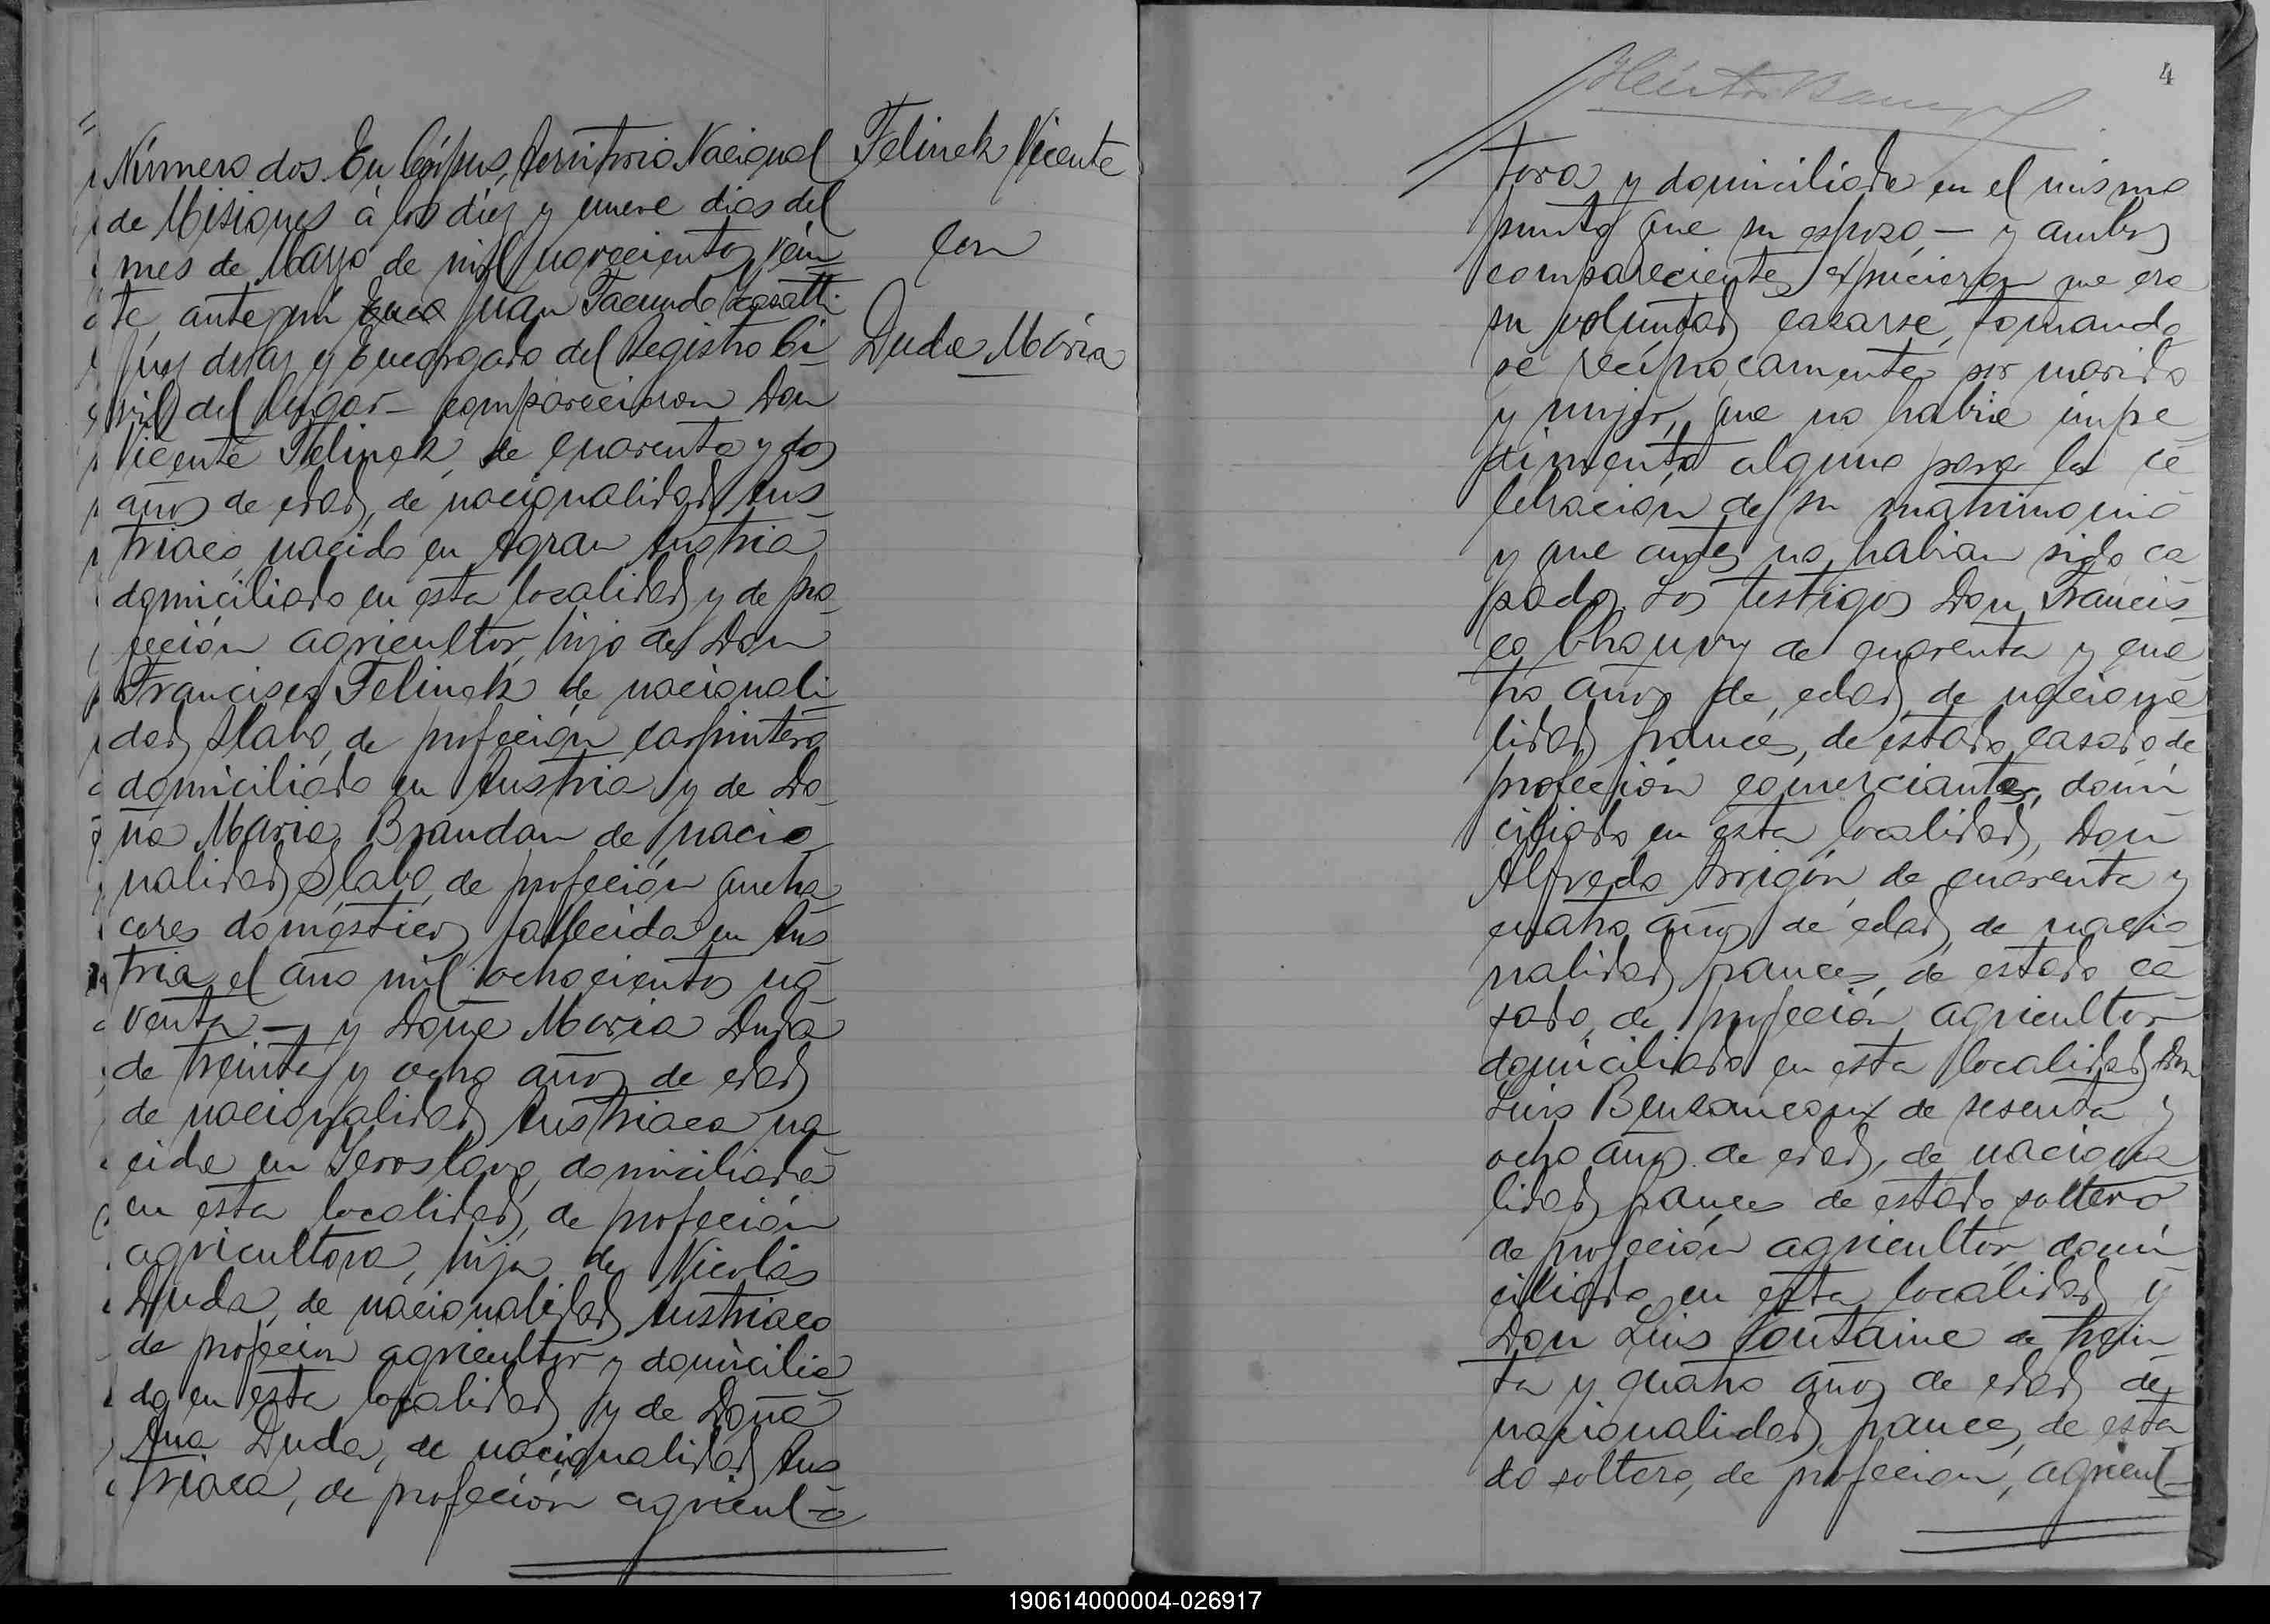 Número dos. En Córpus, territorio Nacional
de Misiones á los diez y nueve dias del
mes de Mayo de mil novecientos vein
te, ante mi Juan Facundo
Juez de Paz y Encargado del Registro Ci
vil del lugar - comparecieron Don
Vicente Felinek, de cuarenta y dos
años de edad, de nacionalidad Aus
triaco, nacido en Agran Austria,
domiciliado en esta localidad y de pro
feción agricultor, hijo de Don
Francisco Felinek de nacionali
dad Slabo, de profeción carpintero
domiciliado en Austria y de Do
ña Maria Brandan de nacio
nalidad Slabo, de profeción queha
ceres domésticos, fallecida en Aus
tria el año mil ochocientos no
venta — y Doña Maria Duda
de treinta y ocho años de edad
de nacionalidad Austriaca na
cida en Seroslavo, domiciliada
en esta localidad, de profeción
agricultora, hija de Nicolás
Duda, de nacionalidad Austriaco
de profecion agricultor y domicilia
do en esta localidad y de Doña
Ana Duda, de nacionalidad Aus
triaca, de profeción agricul-
Felinek Vicente
con
Duda Maria
4
tora y domiciliada en el mismo
punto que su esposo, — y ambos
comparecientes expucieron que era
su voluntad casarse, tomando
se recíprocamente por marido
y mujer, que no habia impe
dimento alguno para la ce
lebración de su matrimonio
y que antes no habian sido ca
sados. Los testigos Don Francis
co de cuarenta y cua
tro años de edad, de naciona
lidad francés, de estado casado de
profeción comerciante, domi
ciliado en esta localidad, Don
Alfredo Arrigón, de cuarenta y
cuatro años de edad, de nacio
nalidad frances, de estado ca
sado, de profeción agricultor
domiciliado en esta localidad Don
Luis Benzaneaux de sesenta y
ocho años de edad, de naciona
lidad frances de estado soltero
de profeción agricultor, domi
ciliado en esta localidad y
Don Luis Fontaine de trein
ta y cuatro años de edad de
nacionalidad frances, de esta
do soltero, de profecion, agricul-
190614000004-026917